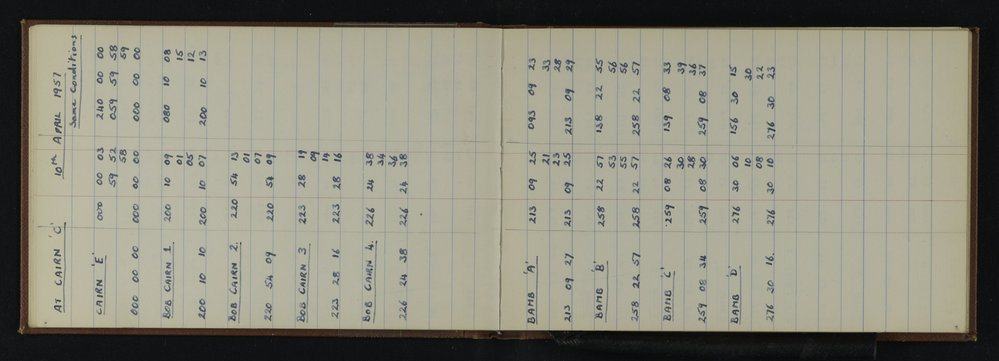 AT CAIRN 'C' 10TH APRIL 1957
Same Conditions
CAIRN 'E' 000 00 03 240 00 00
59 52 059 59 58
58 59
000 00 00 000 00 00 000 00 00
BOB CAIRN 1. 200 10 09 080 10 08
01 15
05 12
200 10 10 200 10 07 200 10 13
BOB CAIRN 2. 220 54 13
01
07
220 54 09 220 54 09
BOB CAIRN 3 223 28 19
09
14
223 28 16 223 28 16
BOB CAIRN 4. 226 24 38
34
36
226 24 38 226 24 38
BAMB 'A' 213 09 25 093 09 23
21 33
23 28
213 09 27 213 09 25 213 09 29
BAMB 'B' 258 22 57 138 22 55
53 56
55 56
258 22 57 258 22 57 258 22 57
BAMB 'C' 259 08 26 139 08 33
30 39
28 36
259 08 34 259 08 30 259 08 37
BAMB 'D' 276 30 06 156 30 15
10 30
08 22
276 30 16. 276 30 10 276 30 23